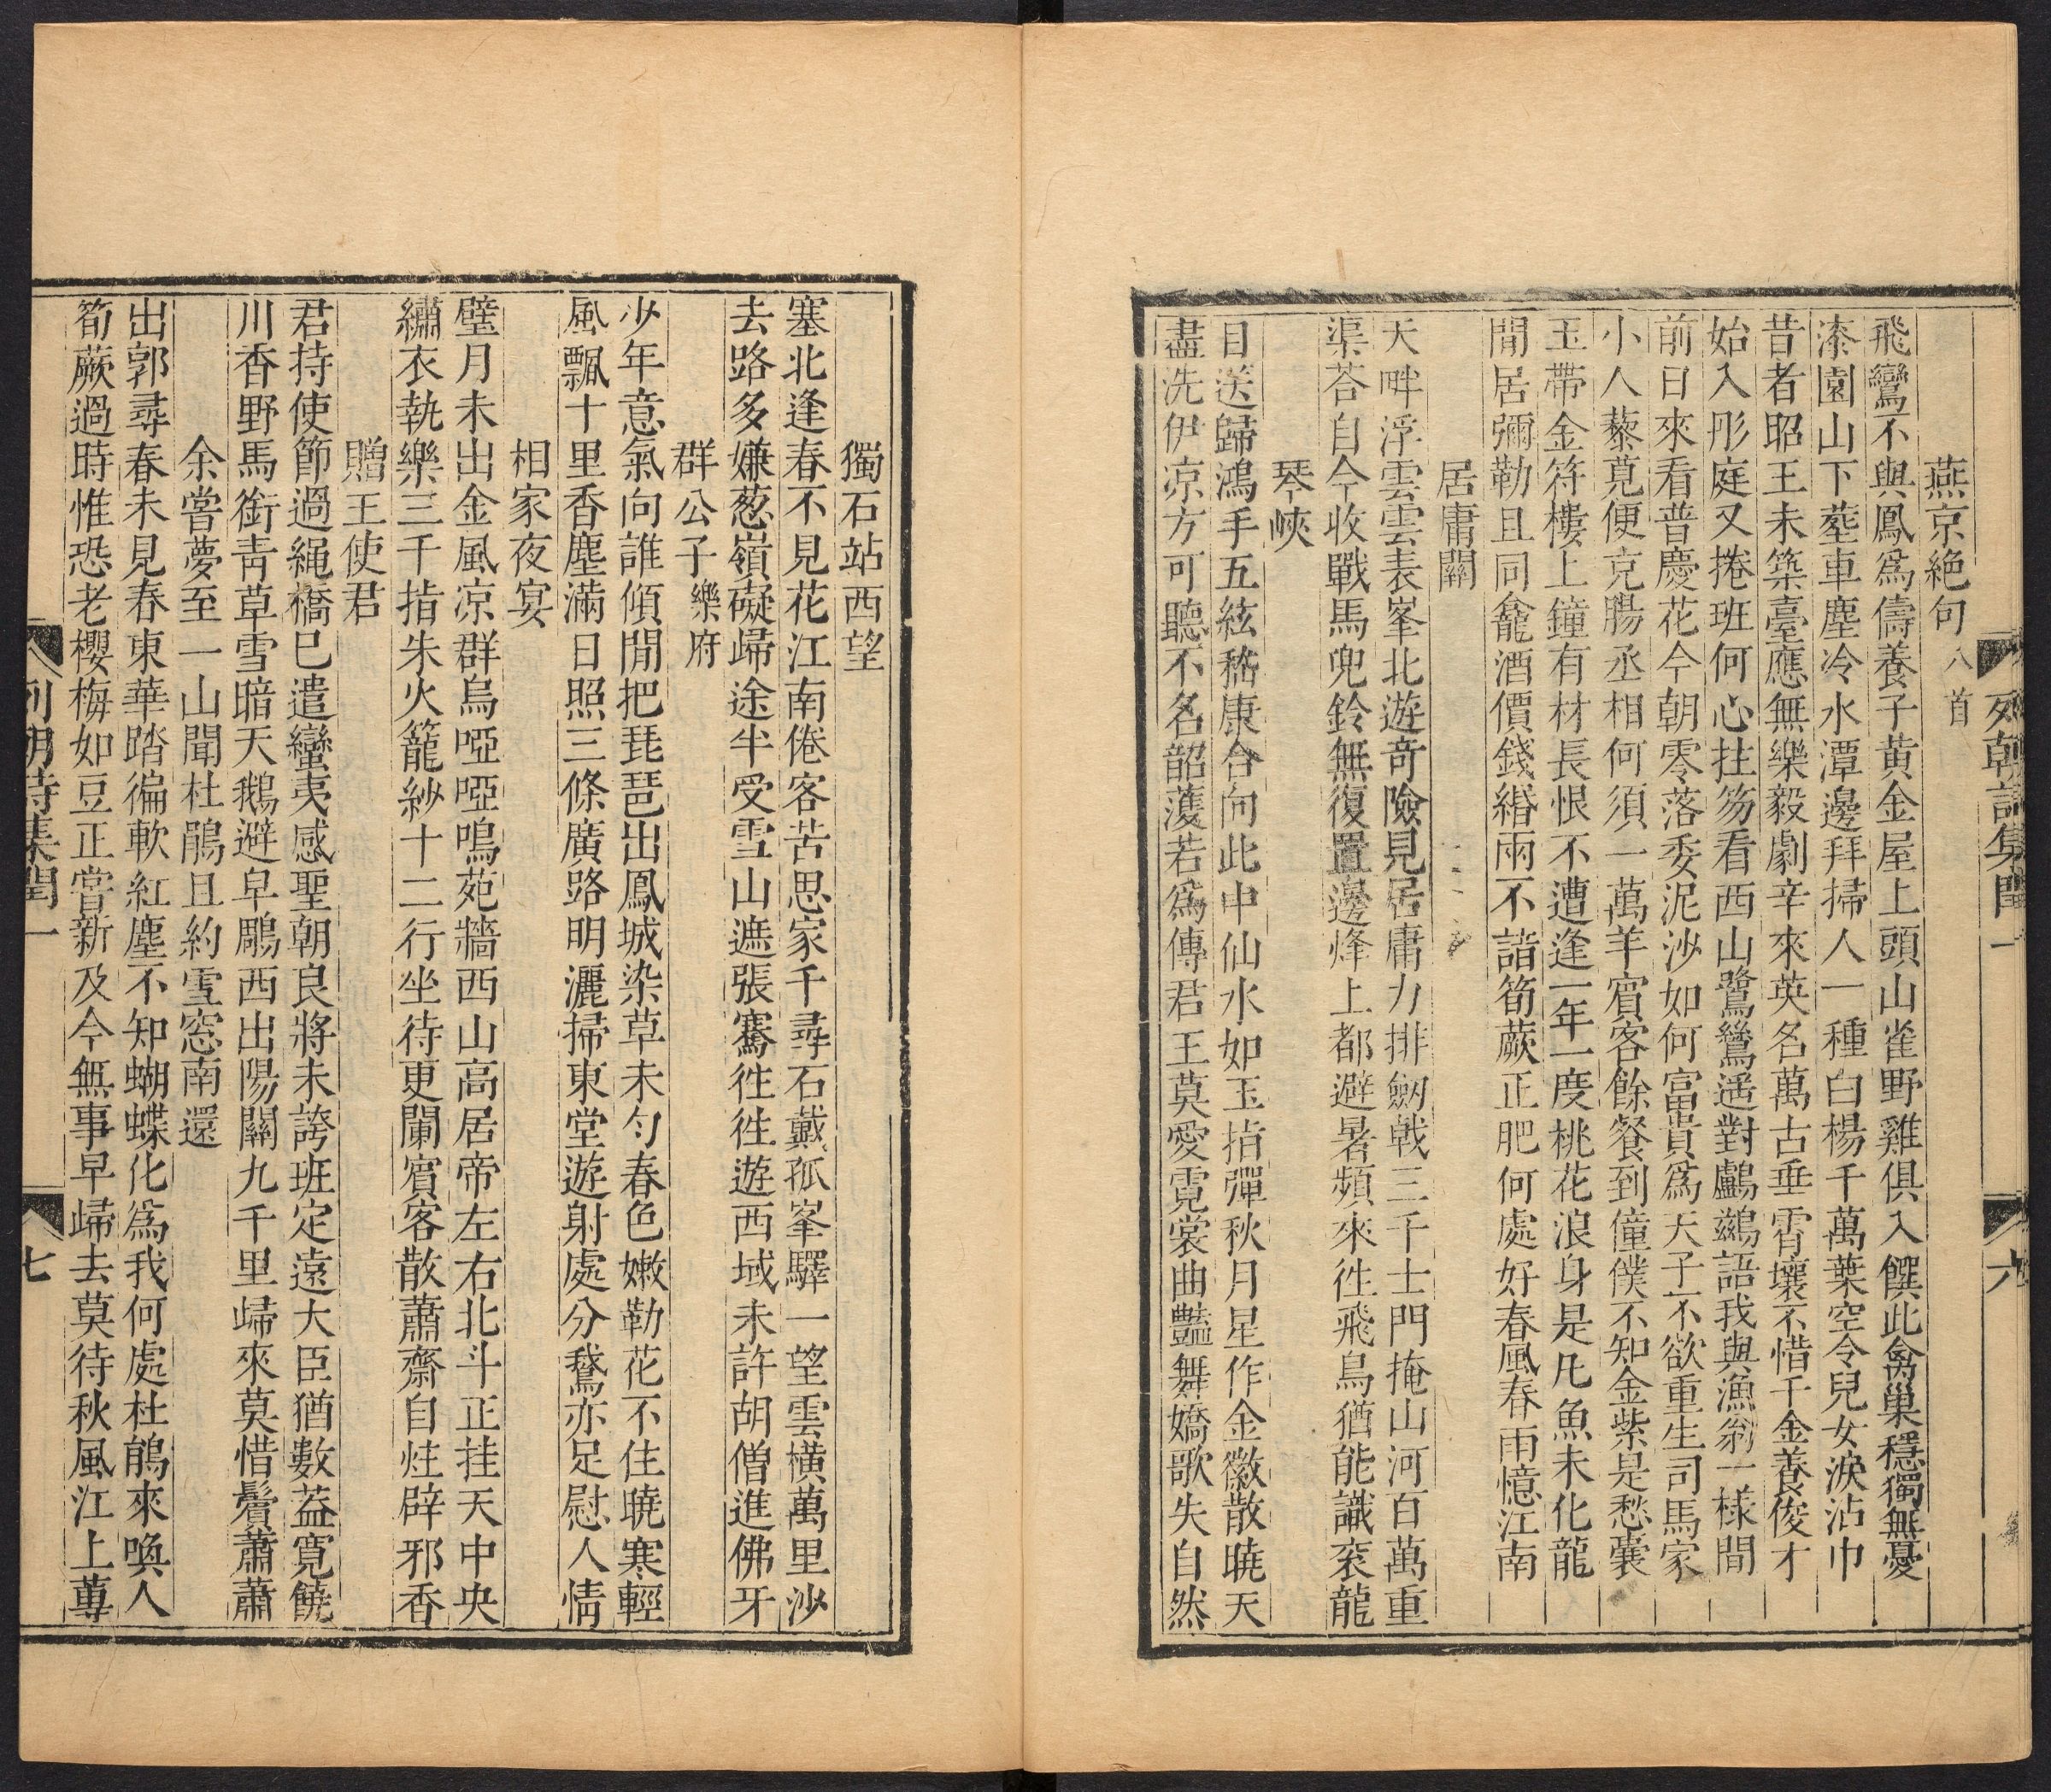 列朝詩集閏一 六
燕京絶句八首
飛鸞不與鳳爲儔養子黄金屋上頭山雀野雞俱入饌此禽巢穩獨無憂
漆園山下塟車塵冷水潭邊拜掃人一種白楊千萬葉空令兒女淚沾巾
昔者昭王未築臺應無樂毅劇辛來英名萬古垂霄壤不惜千金養俊才
始入彤庭又捲班何心拄笏看西山鷺鶿遥對鸕鷀語我與漁翁一樣間
前日來看普慶花今朝零落委泥沙如何富貴爲天子不欲重生司馬家
小人藜莧便充腸丞相何須一萬羊賓客餘餐到僮僕不知金紫是愁囊
玉帶金符樓上鐘有材長恨不遭逢一年一度桃花浪身是凡魚未化龍
閒居彌勒且同龕酒價錢緡兩不諳筍蕨正肥何處好春風春雨憶江南
居庸關
天畔浮雲雲表峯北遊奇險見居庸力排劒戟三千士門掩山河百萬重
渠荅自今收戰馬兜鈴無復置邊烽上都避暑頻來徃飛鳥猶能識衮龍
琴峽
目送歸鴻手五絃嵇康合向此中仙水如玉指彈秋月星作金徽散曉天
盡洗伊凉方可聽不名韶濩若爲傳君王莫愛霓裳曲豔舞嬌歌失自然
獨石站西望
塞北逢春不見花江南倦客苦思家千尋石戴孤峯驛一望雲横萬里沙
去路多嫌葱嶺礙歸途半受雪山遮張騫徃徃遊西域未許胡僧進佛牙
群公子樂府
少年意氣向誰傾閒把琵琶出鳳城染草未勻春色嫩勒花不住曉寒輕
風飄十里香塵滿日照三條廣路明灑掃東堂遊射處分鵞亦足慰人情
相家夜宴
璧月未出金風凉群烏啞啞鳴苑牆西山高居帝左右北斗正挂天中央
繡衣執樂三千指朱火籠紗十二行坐待更闌賓客散蕭齋自炷辟邪香
贈王使君
君持使節過繩橋巳遣蠻夷感聖朝良將未誇班定遠大臣猶數葢寛饒
川香野馬銜青草雪暗天鵝避皁鵰西出陽關九千里歸來莫惜鬢蕭蕭
余嘗夢至一山聞杜鵑且約雪窓南還
出郭尋春未見春東華踏徧軟紅塵不知蝴蝶化爲我何處杜鵑來喚人
筍蕨過時惟恐老櫻梅如豆正嘗新及今無事早歸去莫待秋風江上蓴
列朝詩集閏一 七